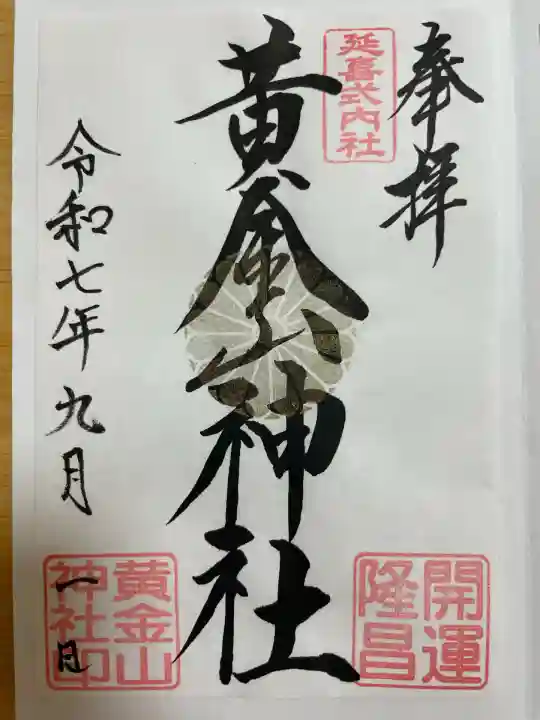 奉拝
延喜式内社
黄金山神社
開運
隆昌
令和七年九月
一日
黄金山
神社印